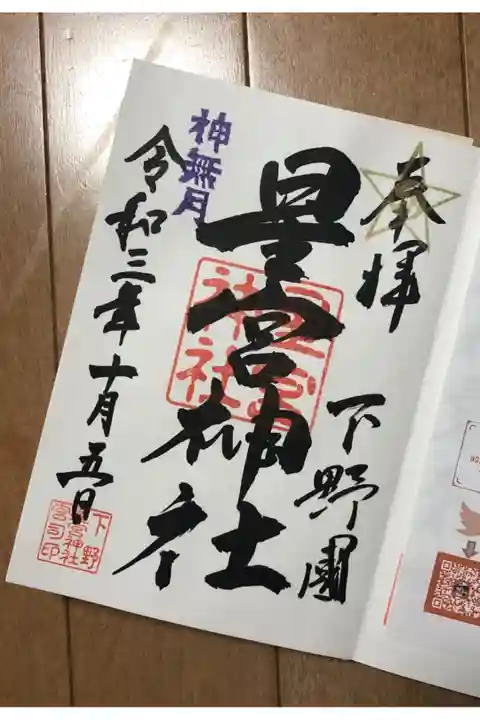 奉拝
下野國
星宮神社
星宮
神社
神無月
令和三年十月五日
下野
宮神社
宮司印